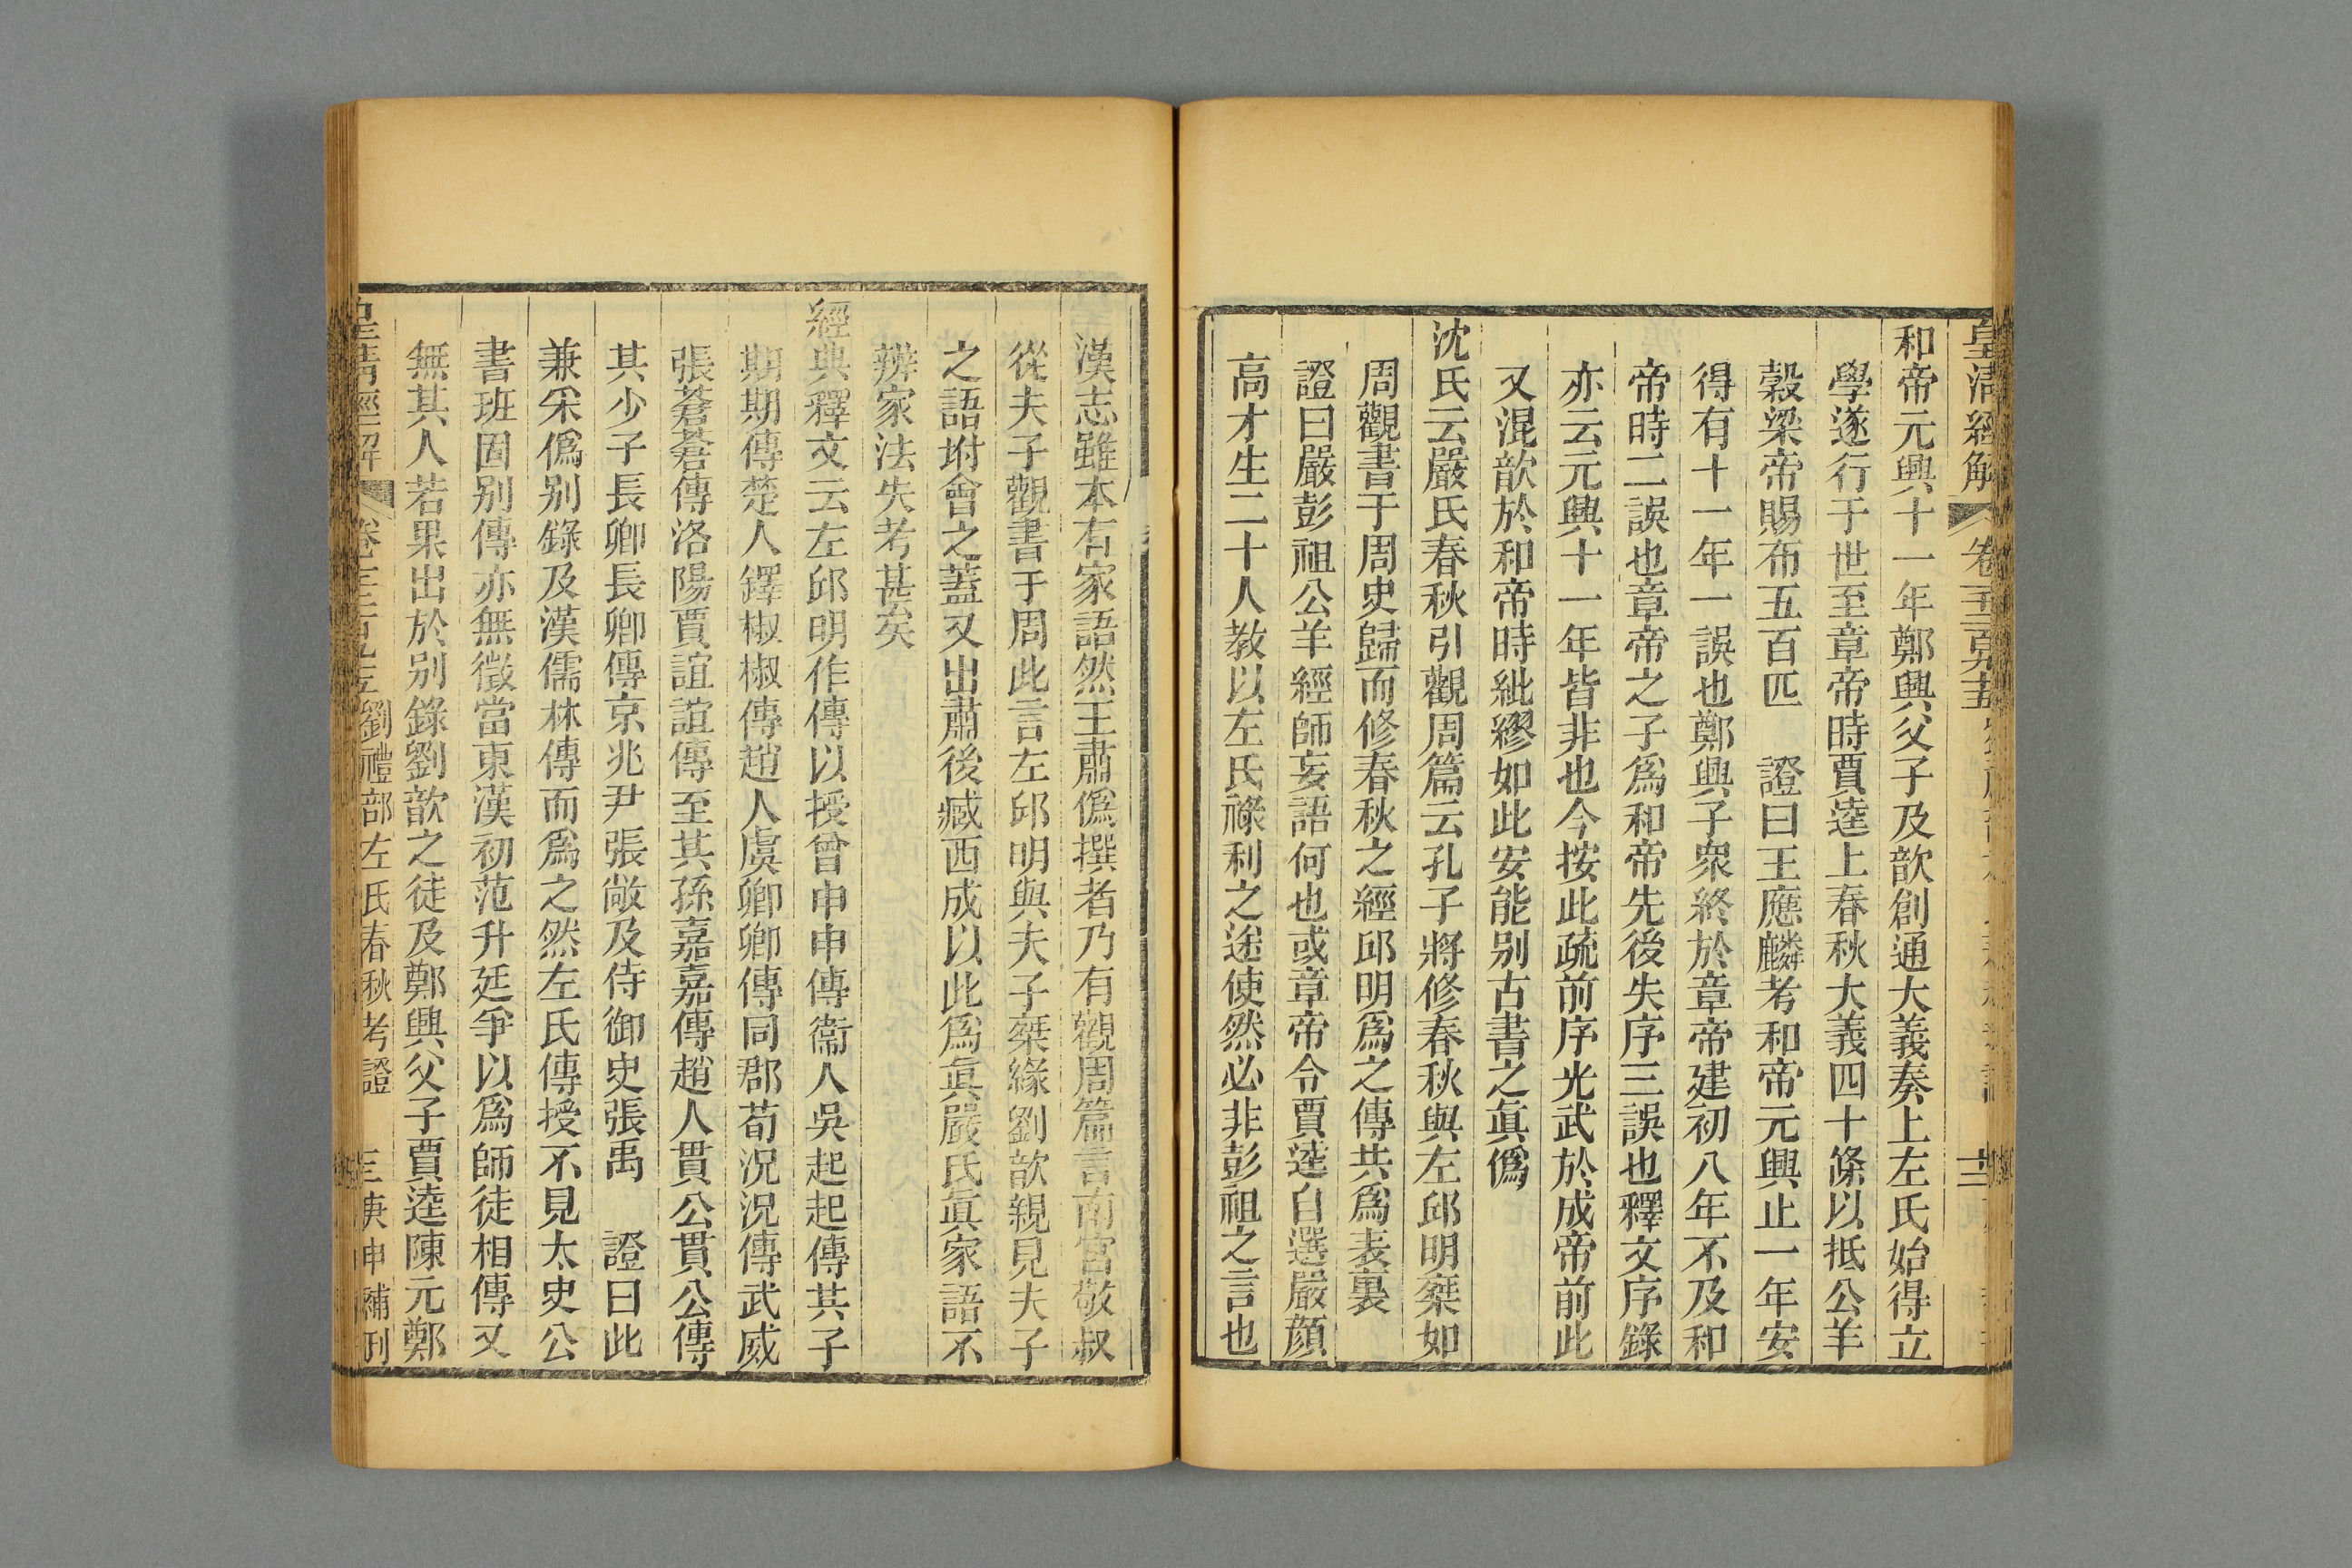 皇清經解 卷一千二百九十五
十二
和帝元興十一年鄭興父子及歆創通大義奏上左氏始得立
學遂行于世至章帝時賈逵上春秋大義四十條以抵公羊
穀梁帝賜布五百匹 證曰王應麟考和帝元興止一年安
得有十一年一誤也鄭興子眾終於章帝建初八年不及和
帝時二誤也章帝之子爲和帝先後失序三誤也釋文序錄
亦云元興十一年皆非也今按此疏前序光武於成帝前此
又混歆於和帝時紕繆如此安能别古書之眞僞
沈氏云嚴氏春秋引觀周篇云孔子將修春秋與左邱明椉如
周觀書于周史歸而修春秋之經邱明爲之傳共爲表裏
證曰嚴彭祖公羊經師妄語何也或章帝令賈逵自選嚴顏
高才生二十人教以左氏祿利之途使然必非彭祖之言也
漢志雖本有家語然王肅僞撰者乃有觀周篇言南宮敬叔
從夫子觀書于周此言左邱明與夫子椉緣劉歆親見夫子
之語坿會之蓋又出肅後臧西成以此爲眞嚴氏眞家語不
辨家法失考甚矣
經典釋文云左邱明作傳以授曾申申傳衞人吳起起傳其子
期期傳楚人鐸椒椒傳趙人虞卿卿傳同郡荀況況傳武威
張蒼蒼傳洛陽賈誼誼傳至其孫嘉嘉傳趙人貫公貫公傳
其少子長卿長卿傳京兆尹張敞及侍御史張禹 證曰此
兼采僞别錄及漢儒林傳而爲之然左氏傳授不見太史公
書班固别傳亦無徵當東漢初范升廷爭以爲師徒相傳又
無其人若果出於别錄劉歆之徒及鄭興父子賈逵陳元鄭
皇清經解 劉禮部左氏春秋考證 庚申補刊